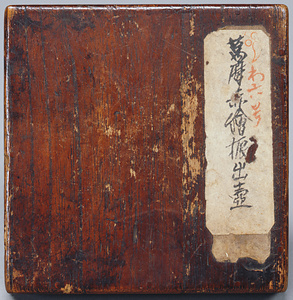 わ六号
萬暦赤繪振出壺